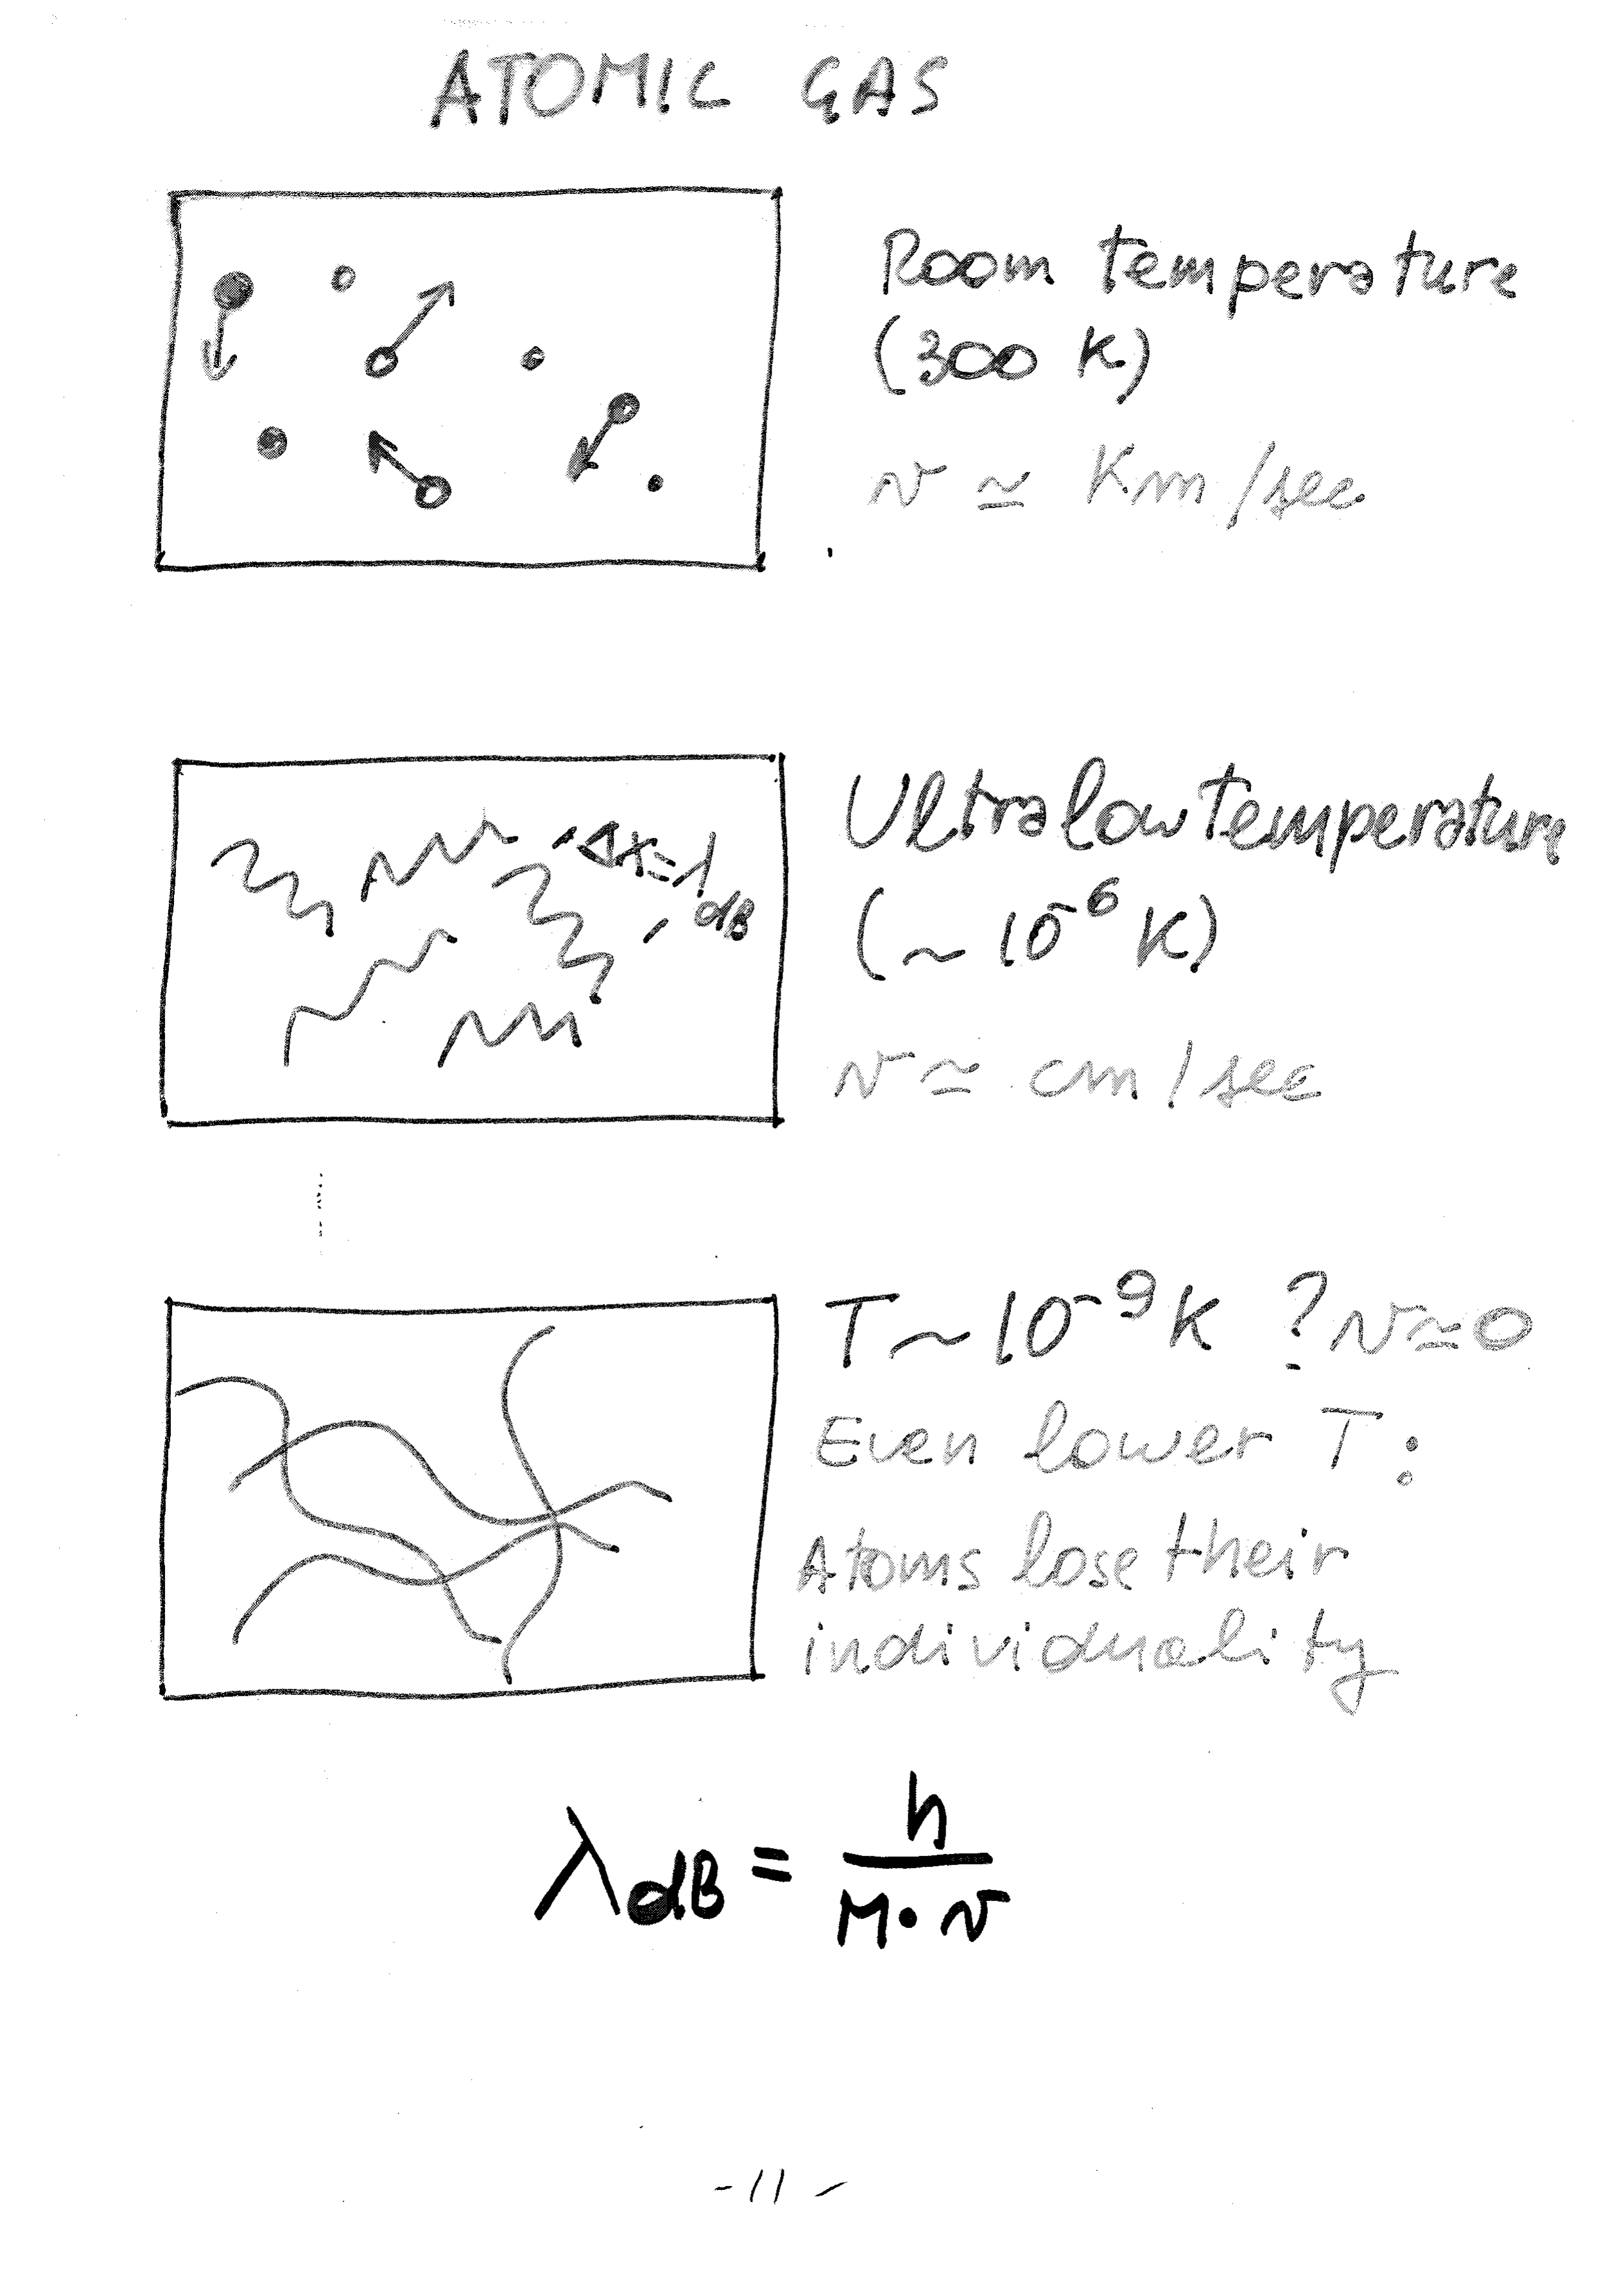 ATOMIC GAS
Room temperature
(300 K)
v ≃ Km/sec
Δx=λ
dB
Ultralow temperature
(~ 10⁻⁶ K)
v ≃ cm/sec
T ~ 10⁻⁹ K ? v≃0
Even lower T:
Atoms lose their
individuality
λdB = h / M·v
-11-